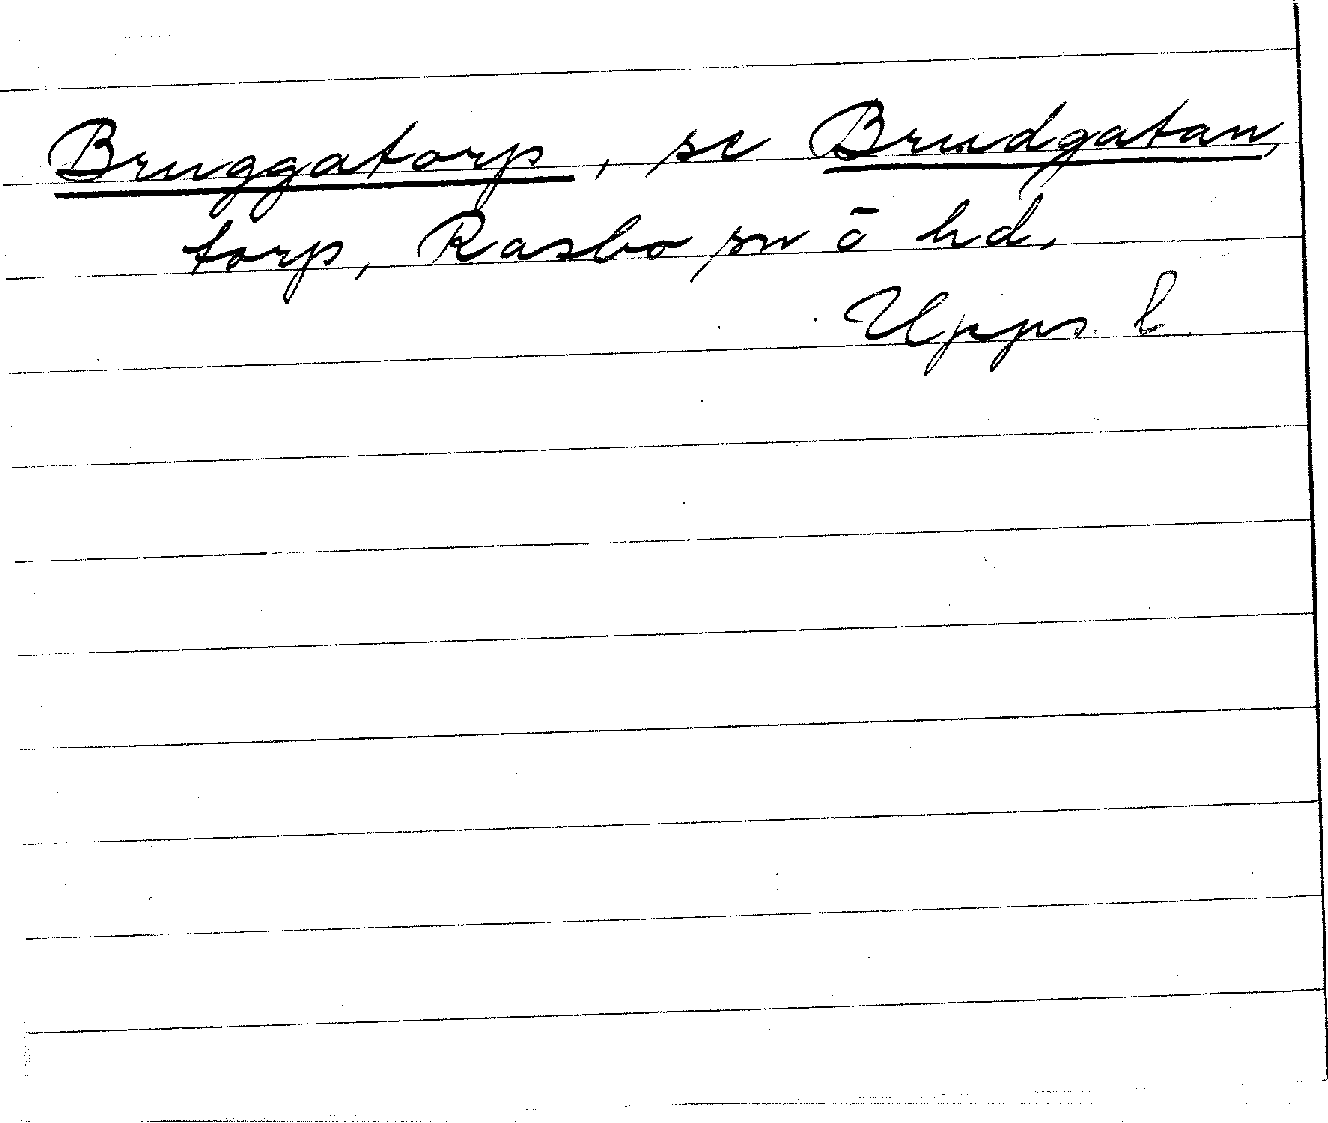 Bruggatorp, se Brudgatan,
torp, Rasbo sn ō hd.
Upps. l.